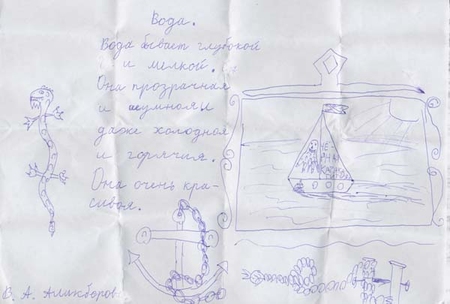 Вода.
Вода бывает глубокой
и мелкой.
Она прозрачная
и шумная и
даже холодной
и горячия.
Она очинь кра-
сивая.
В. А. Аликборов.